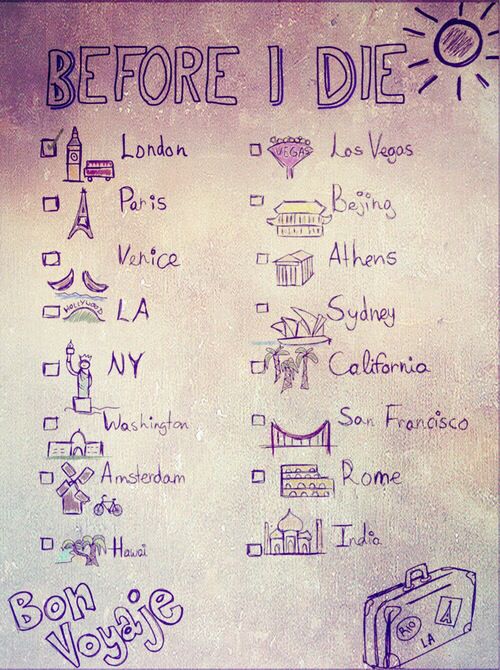 BEFORE I DIE
London
Paris
Venice
HOLLYWOOD
LA
NY
Washington
Amsterdam
Hawai
VEGAS
Los Vegas
Bejing
Athens
Sydney
California
San Francisco
Rome
India
Bon
Voyaje
RIO
LA